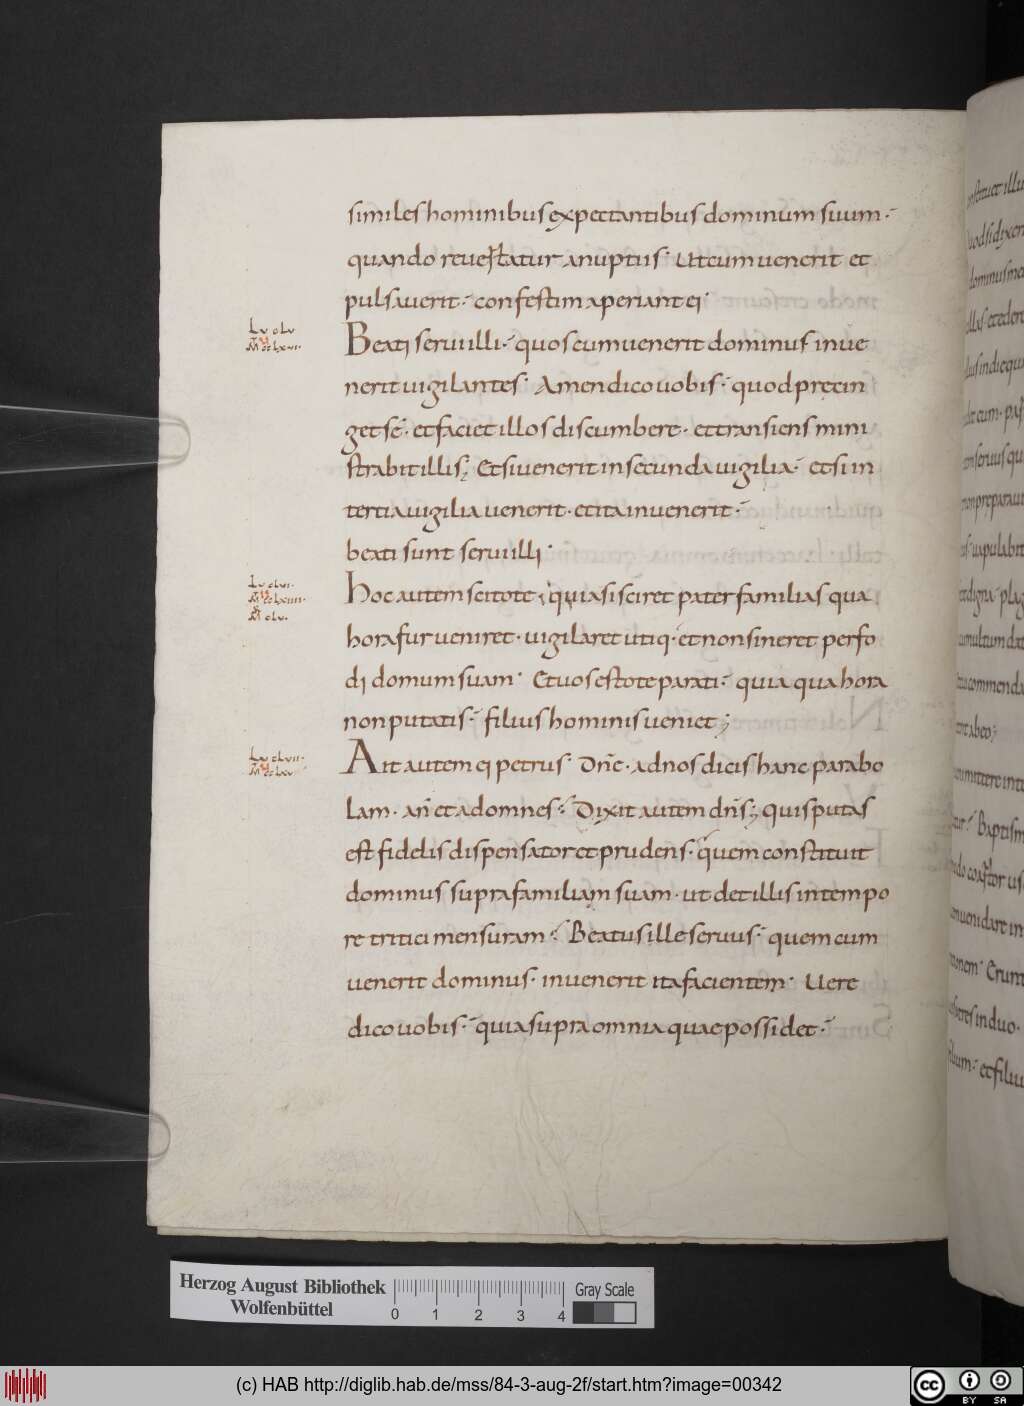 similes hominibus expectantibus dominum suum.
quando revertatur anuptiis. Ut cum venerit et
pulsaverit. confestim aperiant ei.
Beati servi illi. quos cum venerit dominus inve
nerit vigilantes. Amen dico vobis. quod precin
get sé. et faciet illos discumbere. et transiens mini
strabit illis; Et si venerit in secunda vigilia. et si in
tertia vigilia venerit. et ita invenerit.
beati sunt servi illi.
Hoc autem scitote; quia si sciret pater familias qua
hora fur veniret. vigilaret utiq. et non sineret perfo
di domum suam. Et vos estote parati. quia qua hora
non putatis. filius hominis veniet;
Ait autem ei petrus. Dnē. ad nos dicis hanc parabo
lam. an et ad omnes. Dixit autem dns; quis putas
est fidelis dispensator et prudens. quem constituit
dominus supra familiam suam. ut det illis in tempo
re tritici mensuram. Beatus ille servus. quem cum
venerit dominus. invenerit ita facientem. Vere
dico vobis. quia supra omnia quae possidet.
Herzog August Bibliothek
Wolfenbüttel
0 1 2 3 4
Gray Scale
(c) HAB http://diglib.hab.de/mss/84-3-aug-2f/start.htm?image=00342
cc BY SA